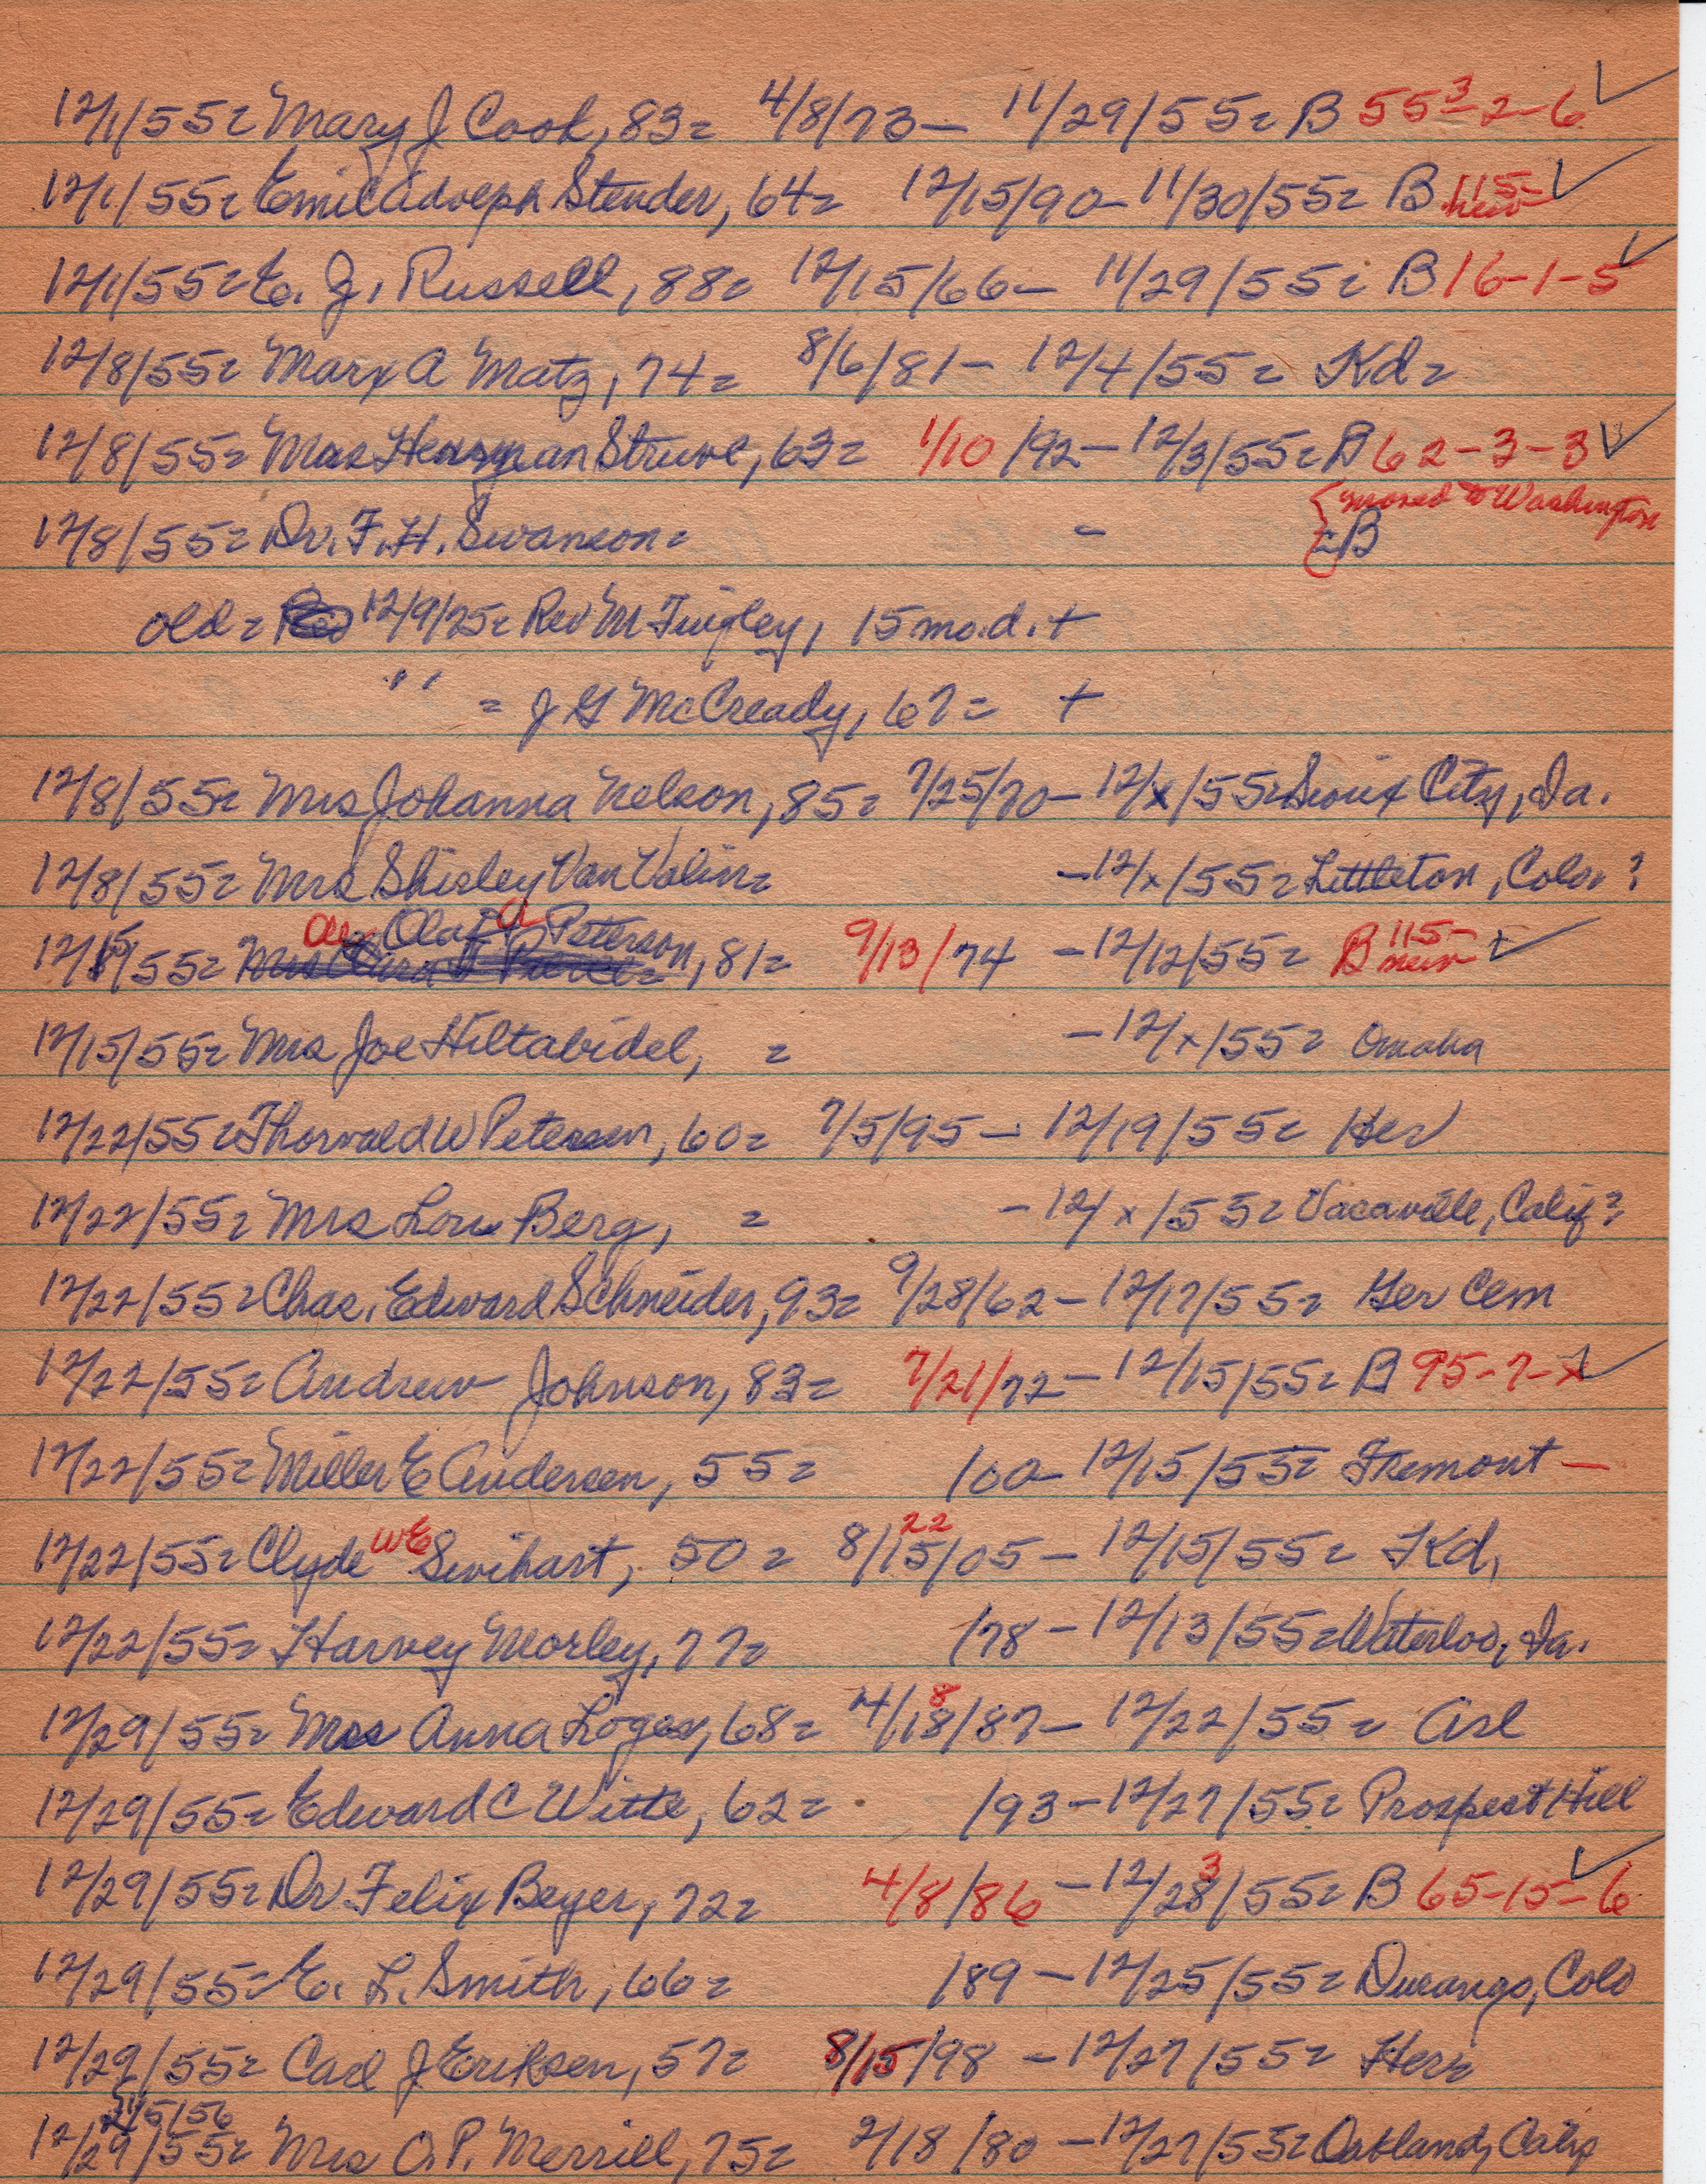 12/1/55= Mary J Cook, 83= 4/8/73- 11/29/55= B 55³-2-6 ✓
12/1/55= Emil Adolph Stender, 64= 12/15/90- 11/30/55= B 115- new ✓
12/1/55= E. J. Russell, 88= 12/15/66- 11/29/55= B 16-1-5 ✓
12/8/55= Mary A Matz, 74= 8/6/81- 12/4/55= Kd=
12/8/55= Mrs Herman Struve, 63= 1/10/92- 12/3/55= B 62-3-3 ✓
12/8/55= Dr. F. H. Swanson= - =B {moved to Washington
old= 12/9/25= Rev M Tingley, 15 mo.d. +
" " = J G McCready, 67= +
12/8/55= Mrs Johanna Nelson, 85= 7/25/70- 12/x/55= Sioux City, Ia.
12/8/55= Mrs Shirley Van Valin= -12/x/55= Littleton, Colo. ?
12/15/55= Olaf a Peterson, 81= 9/13/74 -12/12/55= B 115- new + ✓
12/15/55= Mrs Joe Hiltabidel, = -12/x/55= Omaha
12/22/55= Thorvald W Petersen, 60= 7/5/95- 12/19/55= Her
12/22/55= Mrs Lou Berg, = -12/x/55= Vacaville, Calif?
12/22/55= Chas. Edward Schneider, 93= 9/28/62- 12/17/55= Ger Cem
12/22/55= Andrew Johnson, 83= 7/21/72- 12/15/55= B 95-7-x ✓
12/22/55= Miller E Andersen, 55= /00- 12/15/55= Fremont -
12/22/55= Clyde WE Swihart, 50= 8/15/05- 12/15/55= Kd. 22
12/22/55= Harvey Morley, 77= /78- 12/13/55= Waterloo, Ia.
12/29/55= Mrs Anna Loges, 68= 4/18/87- 12/22/55= Arl 8
12/29/55= Edward C Witte, 62= /93- 12/27/55= Prospect Hill
12/29/55= Dr Felix Beyer, 72= 4/8/86 -12/28/55= B 65-15-6 ✓ 3
12/29/55= E. L. Smith, 66= /89- 12/25/55= Durango, Colo
12/29/55= Carl J Eriksen, 57= 8/15/98 -12/27/55= Her=
/5/56
12/29/55= Mrs O. P. Merrill, 75= 2/18/80 -12/27/55= Oakland, Calif